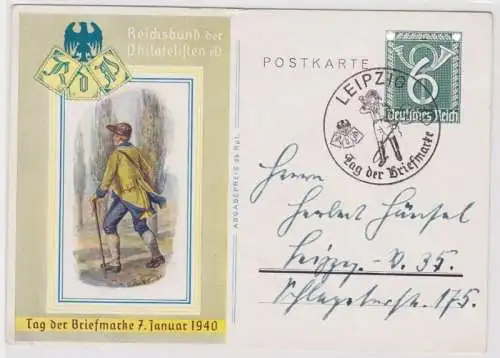 Reichsbund der
Philatelisten eV.
R d P
Tag der Briefmarke 7. Januar 1940
ABGABEPREIS 25 Rpf.
POSTKARTE
6
Deutsches Reich
LEIPZIG
Tag der Briefmarke
Herrn
Herbert Hänsel
Leipzig - W. 35.
Schlageterstr. 175.